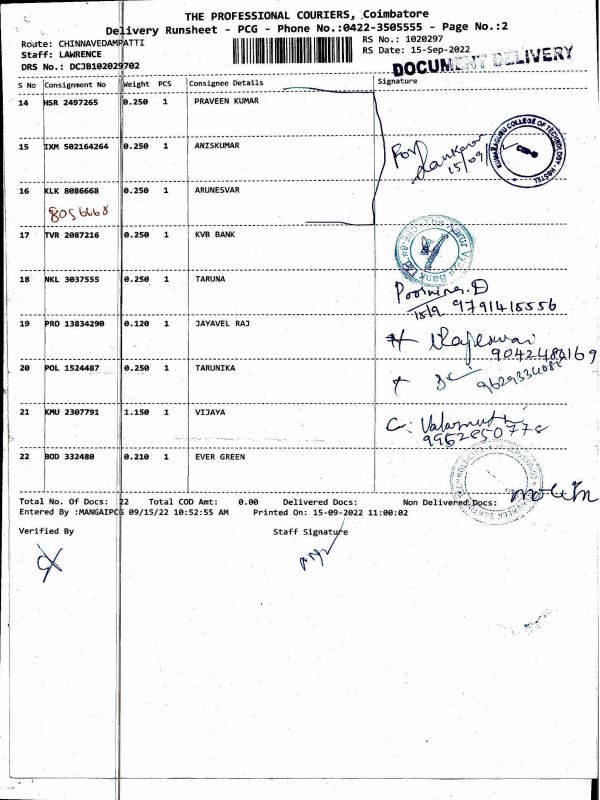 THE PROFESSIONAL COURIERS, Coimbatore
Delivery Runsheet - PCG - Phone No.:0422-3505555 - Page No.:2
Route: CHINNAVEDAMPATTI
Staff: LAWRENCE
DRS No.: DCJB102029702
RS No.: 1020297
RS Date: 15-Sep-2022
DOCUMENT DELIVERY
S No Consignment No Weight PCS Consignee Details Signature
14 HSR 2497265 0.250 1 PRAVEEN KUMAR
15 IXM 502164264 0.250 1 ANISKUMAR
15/09/
KUMARAGURU COLLEGE OF TECHNOLOGY HOSTEL
16 KLK 8086668 0.250 1 ARUNESVAR
8056668
17 TVR 2087216 0.250 1 KVB BANK
The Karur Vysya Bank Ltd
18 NKL 3037555 0.250 1 TARUNA
Poornima.D
15/9 9791415556
19 PRO 13834290 0.120 1 JAYAVEL RAJ
Rajeswari
9042480169
20 POL 1524487 0.250 1 TARUNIKA
21 KMU 2307791 1.150 1 VIJAYA
C.
22 BOD 332480 0.210 1 EVER GREEN
Total No. Of Docs: 22 Total COD Amt: 0.00 Delivered Docs: Non Delivered Docs:
Entered By :MANGAIPCG 09/15/22 10:52:55 AM Printed On: 15-09-2022 11:00:02
Verified By Staff Signature